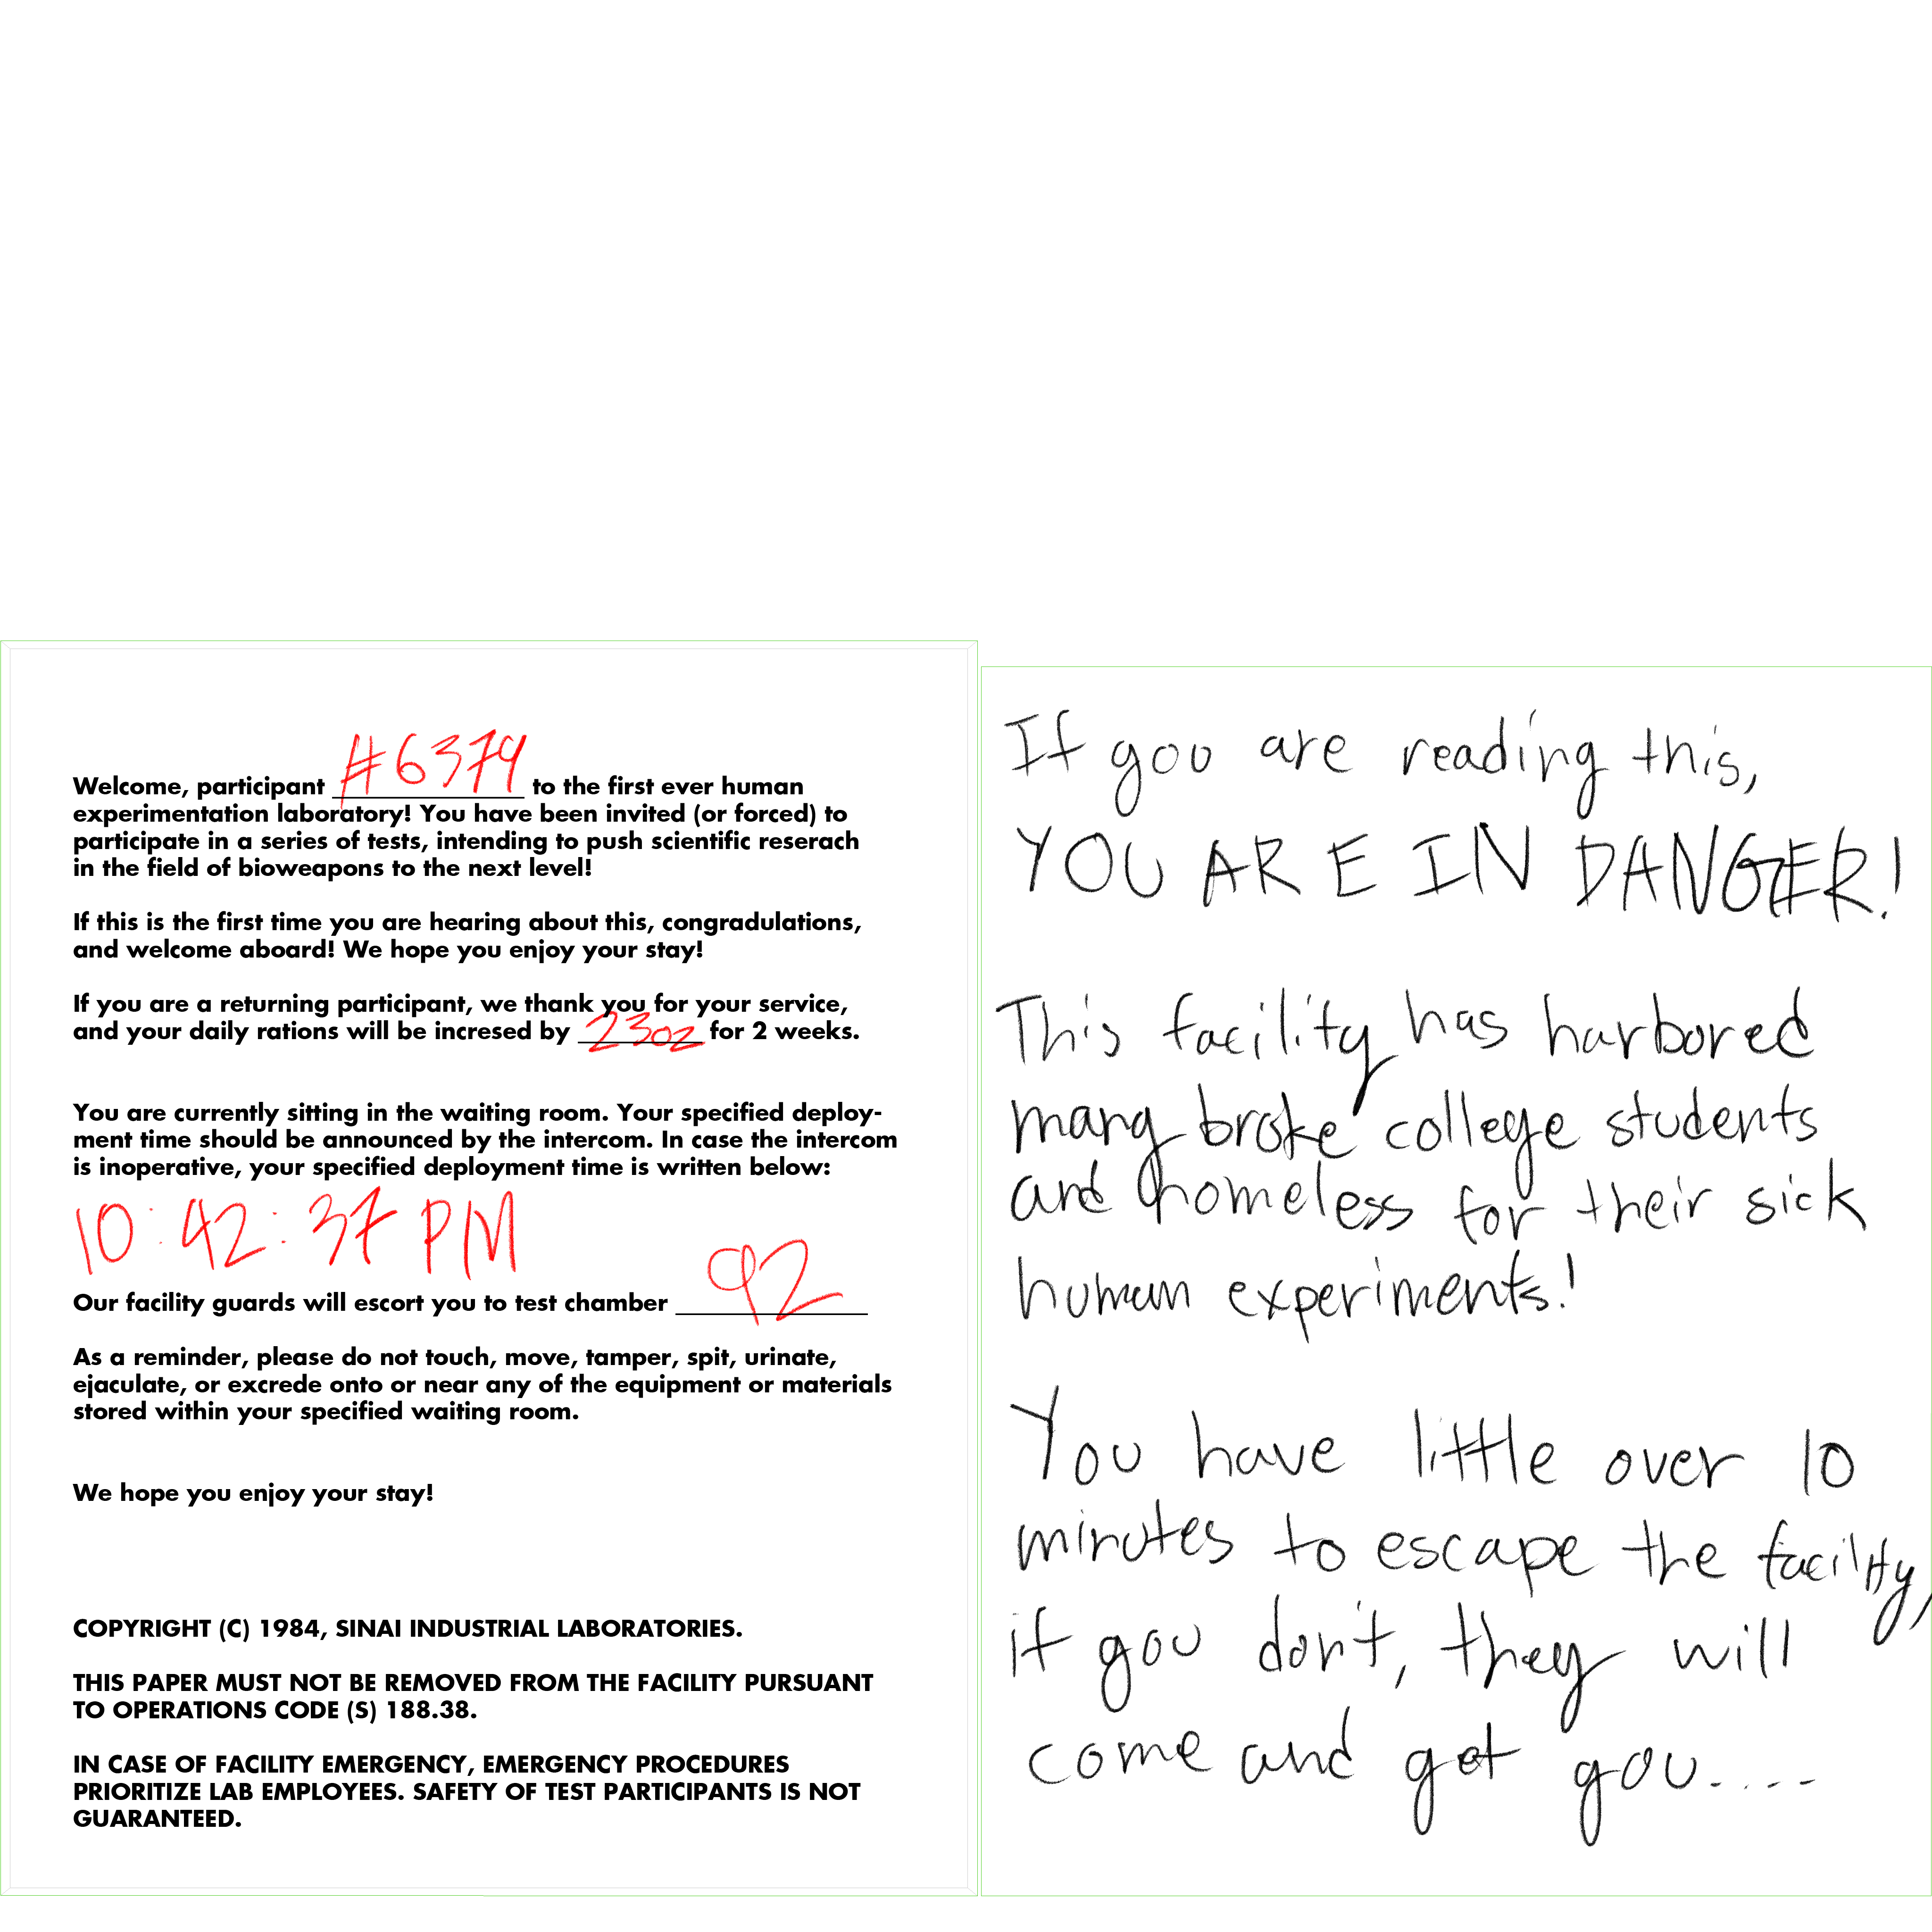 Welcome, participant #6379 to the first ever human
experimentation laboratory! You have been invited (or forced) to
participate in a series of tests, intending to push scientific reserach
in the field of bioweapons to the next level!
If this is the first time you are hearing about this, congradulations,
and welcome aboard! We hope you enjoy your stay!
If you are a returning participant, we thank you for your service,
and your daily rations will be incresed by 23oz for 2 weeks.
You are currently sitting in the waiting room. Your specified deploy-
ment time should be announced by the intercom. In case the intercom
is inoperative, your specified deployment time is written below:
10:42:37 PM
Our facility guards will escort you to test chamber 92
As a reminder, please do not touch, move, tamper, spit, urinate,
ejaculate, or excrede onto or near any of the equipment or materials
stored within your specified waiting room.
We hope you enjoy your stay!
COPYRIGHT (C) 1984, SINAI INDUSTRIAL LABORATORIES.
THIS PAPER MUST NOT BE REMOVED FROM THE FACILITY PURSUANT
TO OPERATIONS CODE (S) 188.38.
IN CASE OF FACILITY EMERGENCY, EMERGENCY PROCEDURES
PRIORITIZE LAB EMPLOYEES. SAFETY OF TEST PARTICIPANTS IS NOT
GUARANTEED.
If you are reading this,
YOU ARE IN DANGER!
This facility has harbored
many broke college students
and homeless for their sick
human experiments!
You have little over 10
minutes to escape the facility,
if you don't, they will
come and get you....